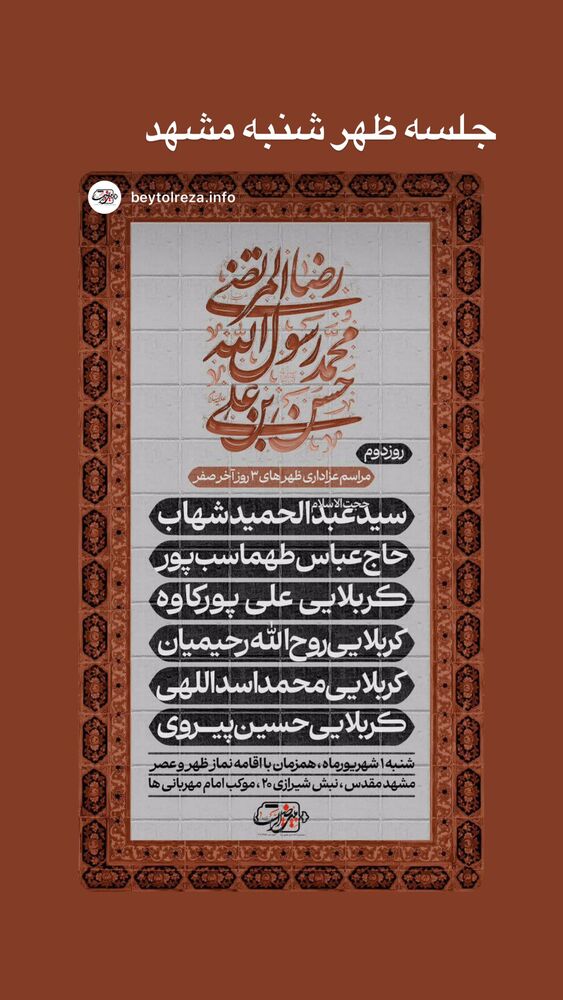 جلسه ظهر شنبه مشهد
beytolreza.info
رضا المرتضی
محمد رسول الله
حسن بن علی
روز دوم
مراسم عزاداری ظهرهای ۳ روز آخر صفر
حجت الاسلام
سید عبدالحمید شهاب
حاج عباس طهماسب پور
کربلایی علی پورکاوه
کربلایی روح الله رحیمیان
کربلایی محمد اسداللهی
کربلایی حسین پیروی
شنبه ۱ شهریورماه ، همزمان با اقامه نماز ظهر و عصر
مشهد مقدس ، نبش شیرازی ۲۰ ، موکب امام مهربانی ها